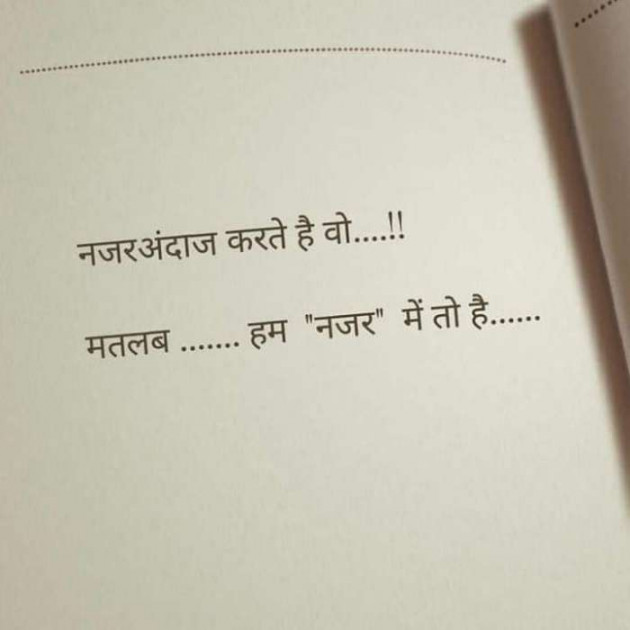 नजरअंदाज करते है वो....!!
मतलब ....... हम "नजर" में तो है......